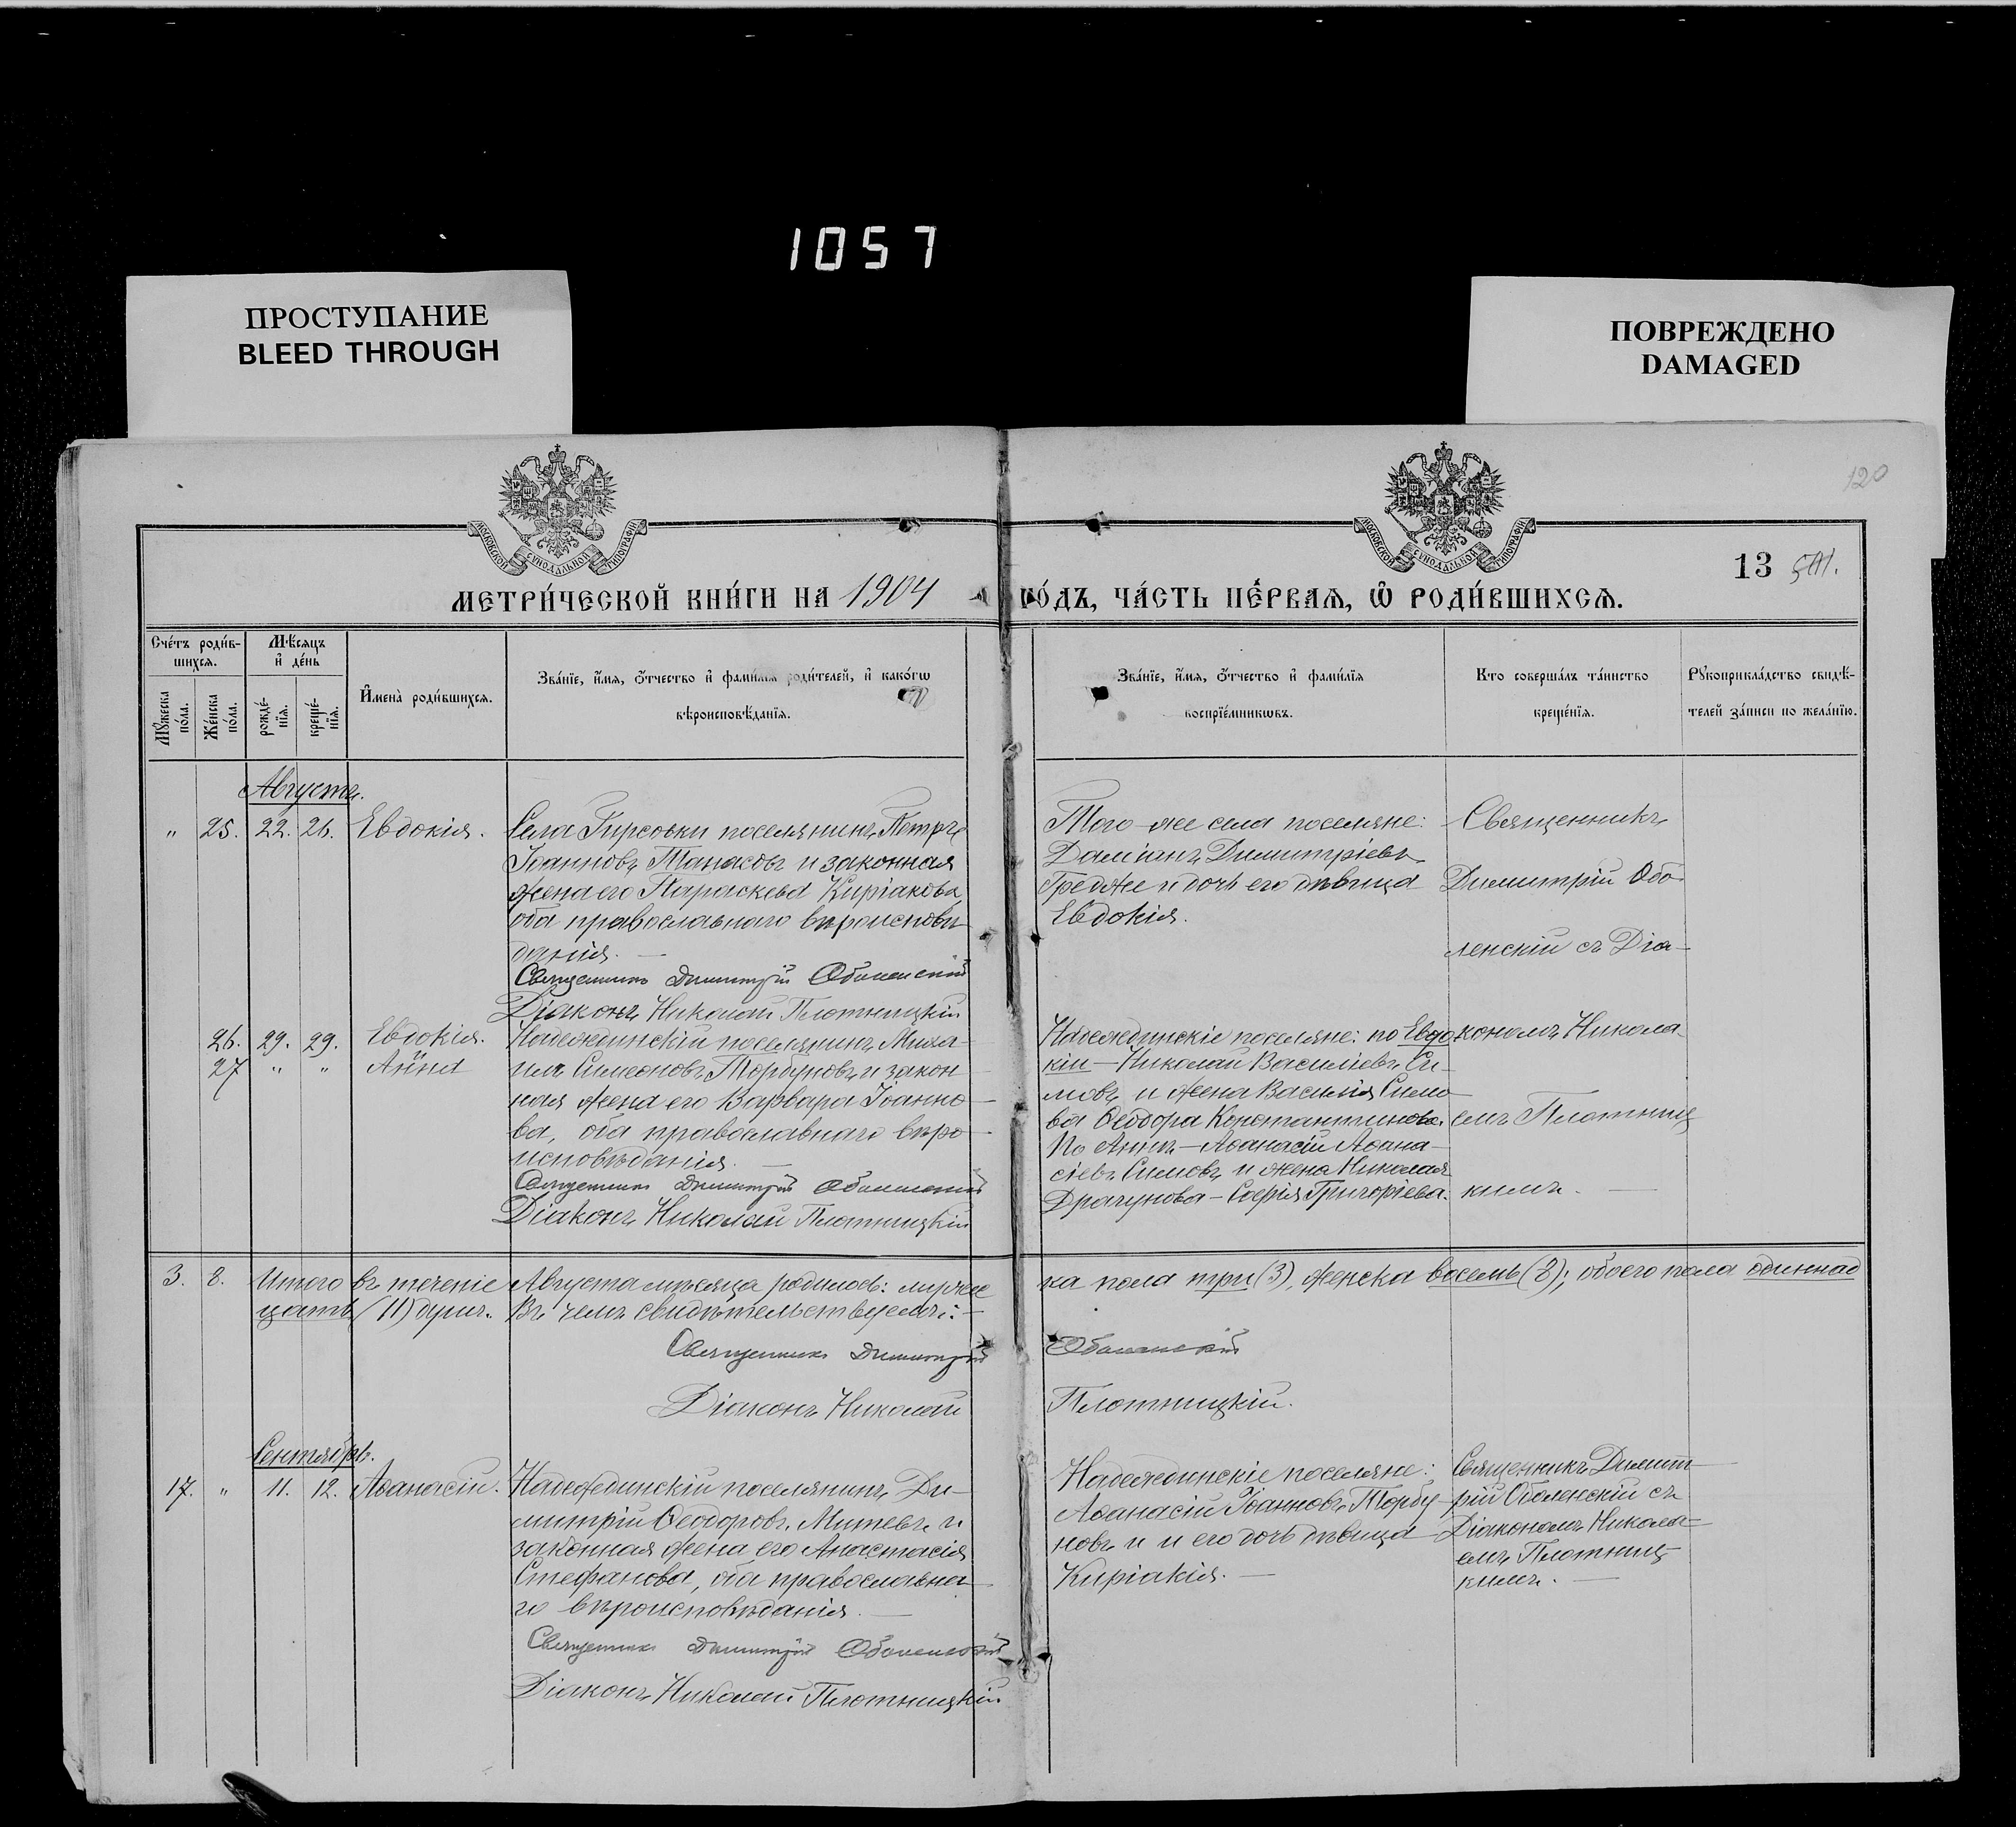 1057
ПРОСТУПАНИЕ
BLEED THROUGH
ПОВРЕЖДЕНО
DAMAGED
120
МОСКОВСКОЙ СѴНОДАЛЬНОЙ ТИПОГРАФІИ
МОСКОВСКОЙ СѴНОДАЛЬНОЙ ТИПОГРАФІИ
13
МЕТРИ́ЧЕСКОЙ КНИ́ГИ НА 1904 ГО́ДЪ, ЧА́СТЬ ПЕ́РВАѦ, Ѡ РОДИ́ВШИХСѦ.
Сче́тъ роди́в-
шихсѧ.
Мѣ́сѧцъ
и де́нь
Мꙋжеска
по́ла.
Же́нска
по́ла.
рожде́-
нїѧ.
креще́-
нїѧ.
И҆мена̀ роди́вшихсѧ.
Зва́нїе, и҆́мѧ, ѻ҆́тчество и҆ фами́лїѧ роди́телей, и҆ како́гѡ
вѣроисповѣ́данїѧ.
Зва́нїе, и҆́мѧ, ѻ҆́тчество и҆ фами́лїѧ
воспрїе́мникѡвъ.
Кто соверша́лъ та́инство
креще́нїѧ.
Рꙋкоприкла́дство свидѣ́-
телей за́писи по жела́нїю.
Августъ.
" 25. 22. 26. Евдокія.
Села Гирсовки поселянинъ Петръ
Іоанновъ Танасовъ и законная
жена его Параскева Киріакова,
оба православнаго вѣроисповѣ-
данія. —
Священникъ Димитрій Оболенскій
Діаконъ Николай Плотницкій
Того-же села поселяне:
Даміанъ Димитріевъ
Греджее и дочь его дѣвица
Евдокія.
Священникъ
Димитрій Обо-
ленскій съ Діа-
кономъ Никола-
емъ Плотниц
кимъ. —
26. 29. 29. Евдокія.
27 " " Анна
Надеждинскій поселянинъ Миха-
илъ Симеоновъ Торбуновъ и закон
ная жена его Варвара Іоанно-
ва, оба православнаго вѣро-
исповѣданія. —
Священникъ Димитрій Оболенскій
Діаконъ Николай Плотницкій
Надеждинскіе поселяне: по Евдо
кіи — Николай Василіевъ Си-
мовъ и жена Василія Симо-
ва Ѳеодора Константинова.
По Аннѣ — Аѳанасій Аѳана-
сіевъ Симовъ и жена Николая
Драгунова — Софія Григоріева.
3. 8. Итого въ теченіе Августа мѣсяца родилось: мужес ка пола три (3), женска восемь (8); обоего пола одиннад
цать (11) душъ. Въ чемъ свидѣтельствуемъ: —
Священникъ Димитрій Оболенскій
Діаконъ Николай Плотницкій.
Сентябрь.
17. " 11. 12. Аѳанасій.
Надеждинскій поселянинъ Ди-
митрій Ѳеодоровъ Митевъ и
законная жена его Анастасія
Стефанова, оба православна-
го вѣроисповѣданія. —
Священникъ Димитрій Оболенскій
Діаконъ Николай Плотницкій
Надеждинскіе поселяне:
Аѳанасій Іоанновъ Торбу-
новъ и и его дочь дѣвица
Киріакія. —
Священникъ Димит-
рій Оболенскій съ
Діакономъ Никола-
емъ Плотниц-
кимъ. —